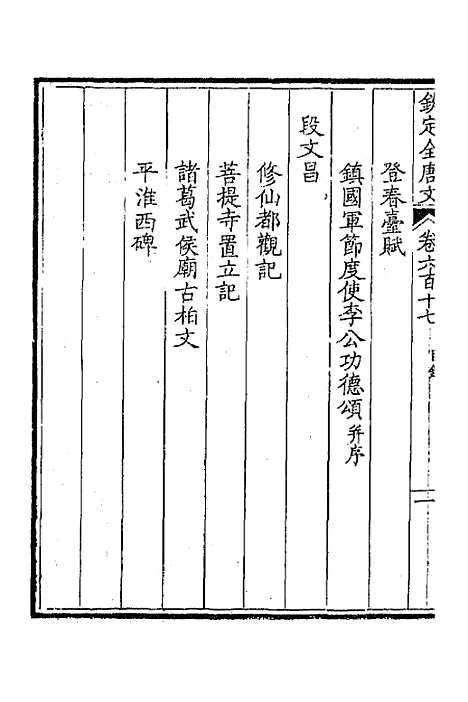 欽定全唐文 卷六百十七 目錄 二
登春臺賦
鎮國軍節度使李公功德頌并序
段文昌
修仙都觀記
菩提寺置立記
諸葛武侯廟古柏文
平淮西碑